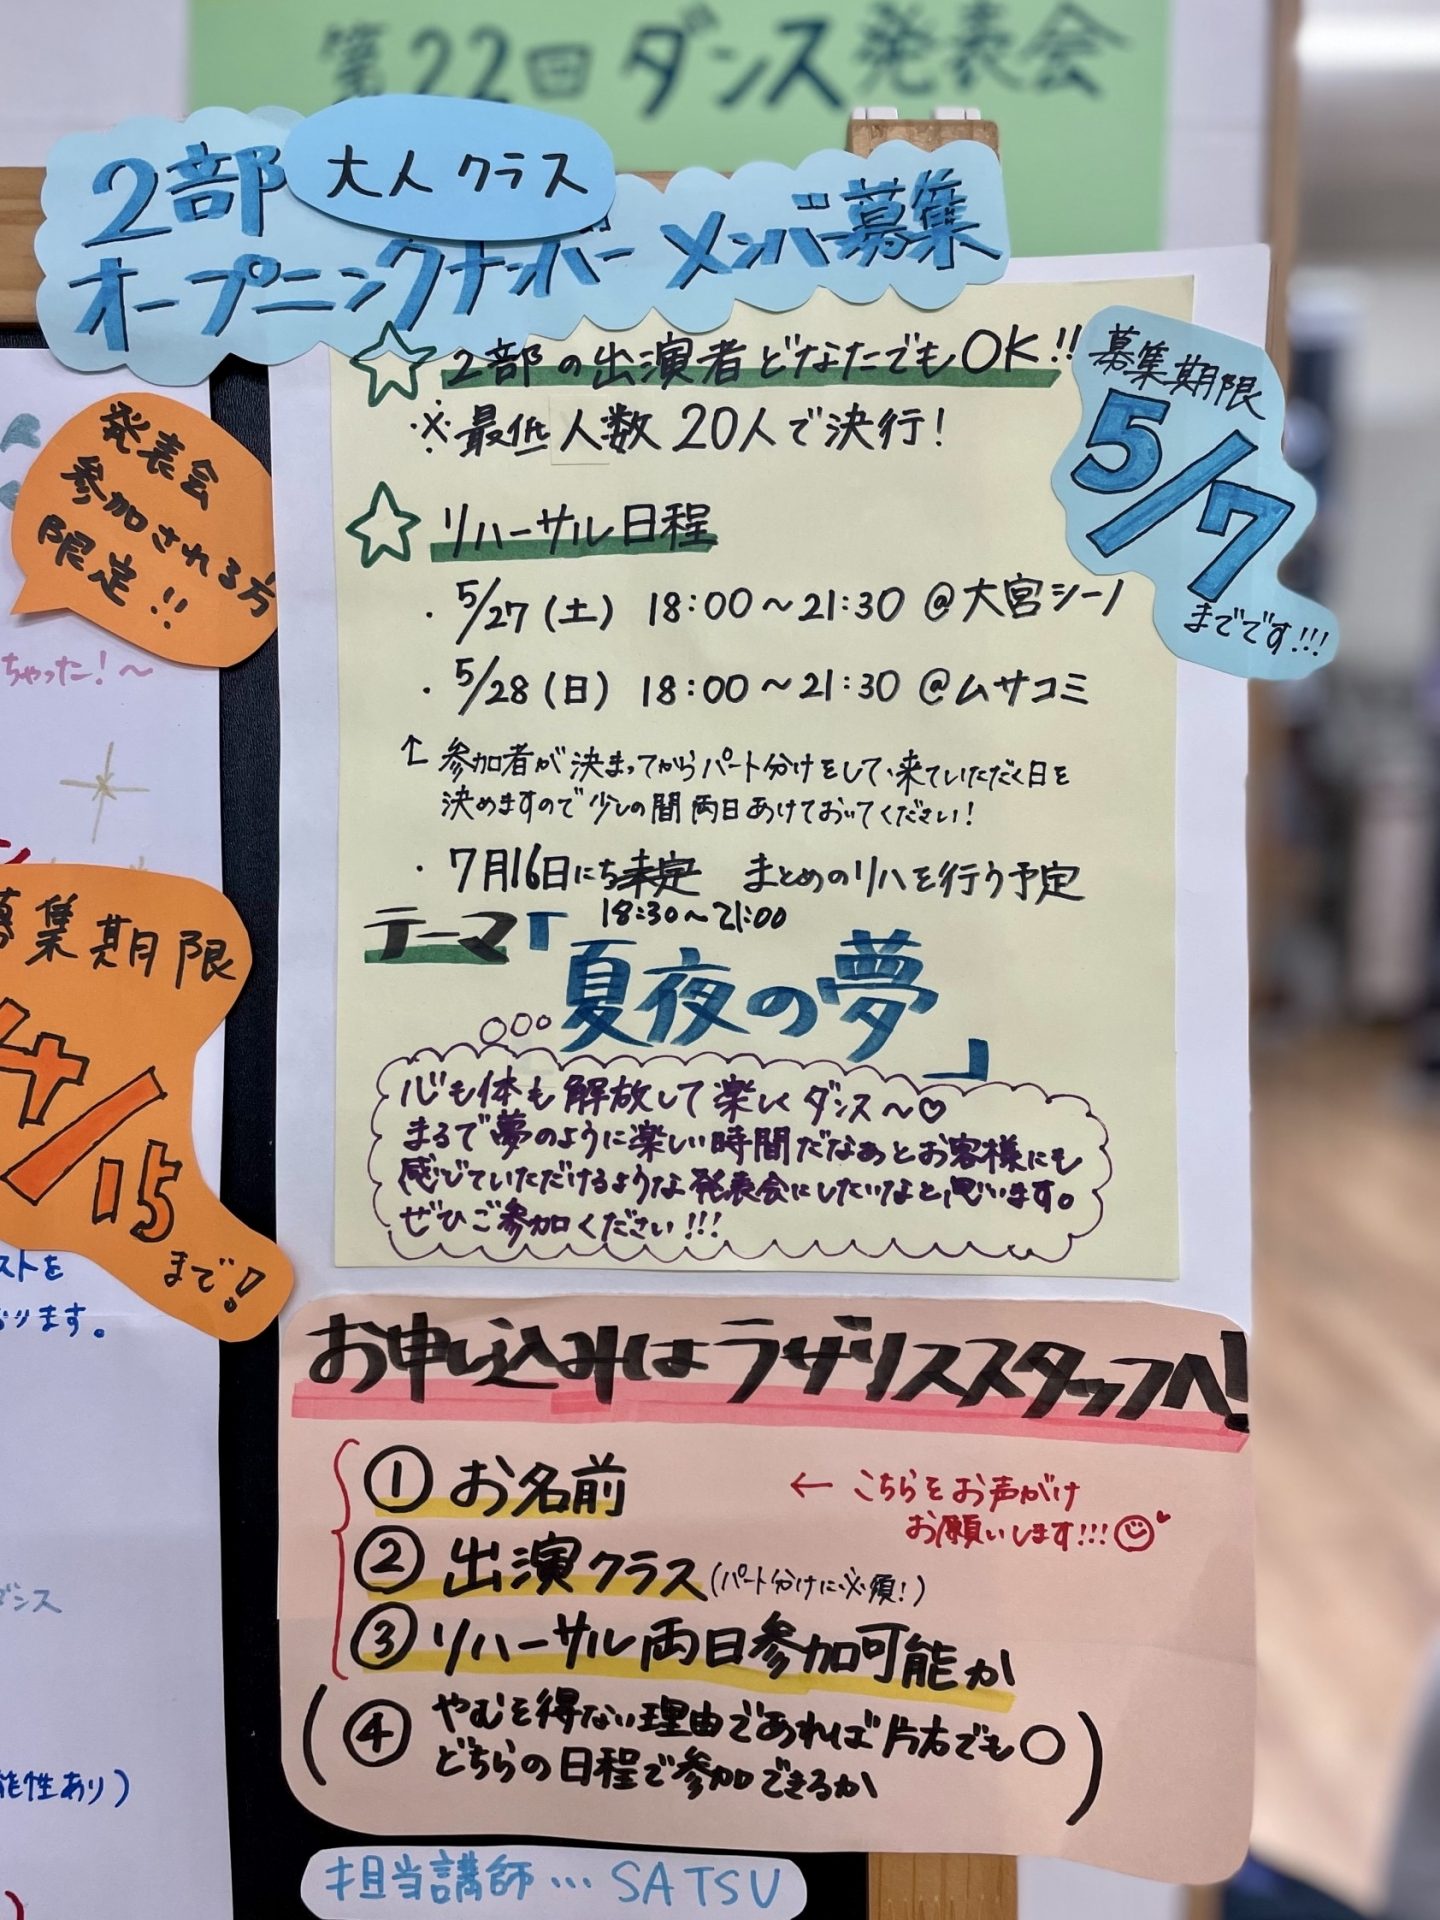 第22回 ダンス発表会
2部 大人クラス
オープニングナンバー メンバー募集
発表会
参加される方
限定!!
☆ 2部の出演者どなたでもOK!!
※最低人数20人で決行!
募集期限
5/7
までです!!!
☆ リハーサル日程
・5/27(土) 18:00~21:30 @大宮シーノ
・5/28(日) 18:00~21:30 @ムサコミ
↑ 参加者が決まってからパート分けをして、来ていただく日を
決めますので少しの間両日あけておいてください!
・7月16日にち未定 まとめのリハを行う予定
18:30~21:00
テーマ「夏夜の夢」
心も体も解放して楽しくダンス~♡
まるで夢のように楽しい時間だなぁとお客様にも
感じていただけるような発表会にしたいなと思います。
ぜひご参加ください!!!
お申し込みはラザリススタッフへ!
① お名前
← こちらをお声がけ
お願いします!!!
② 出演クラス(パート分けに必須!)
③ リハーサル両日参加可能か
(④ やむを得ない理由であれば片方でも○
どちらの日程で参加できるか)
担当講師…SATSU
ちゃった!~
ン
募集期限
4/15
まで!
ストを
おります。
ダンス
能性あり)